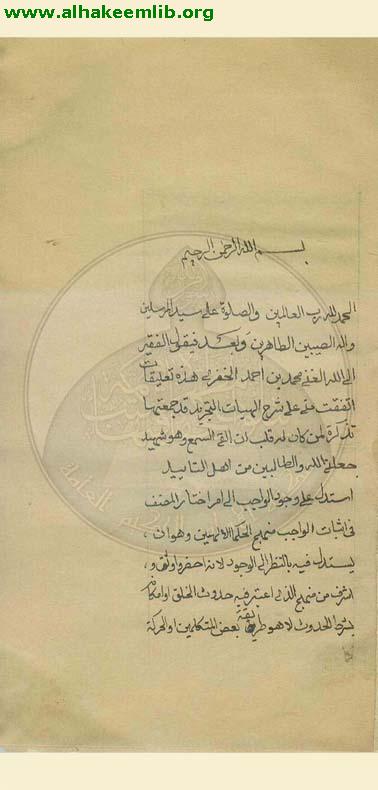 www.alhakeemlib.org
بسم الله الرحمن الرحيم
الحمد لله رب العالمين والصلوة على سيد المرسلين
واله الطيبين الطاهرين وبعد فيقول الفقير
الى الله الغني محمد بن احمد الخفري هذه تعليقات
اتفقت مني على شرح الهيات التجريد قد جمعتها
تذكرة لمن كان له قلب او القى السمع وهو شهيد
جعلني الله والطالبين من اهل التاييد
استدل على وجود الواجب الى اخره اختار المصنف
في اثبات الواجب منهج الحكماء الالهيين وهو ان
يستدل فيه بالنظر الى الوجود لانه اخصر واوثق و
اشرف من منهج الذي اعتبر فيه حدوث الخلق او امكانه
بشرط الحدوث كما هو طريقة بعض المتكلمين او الحركة